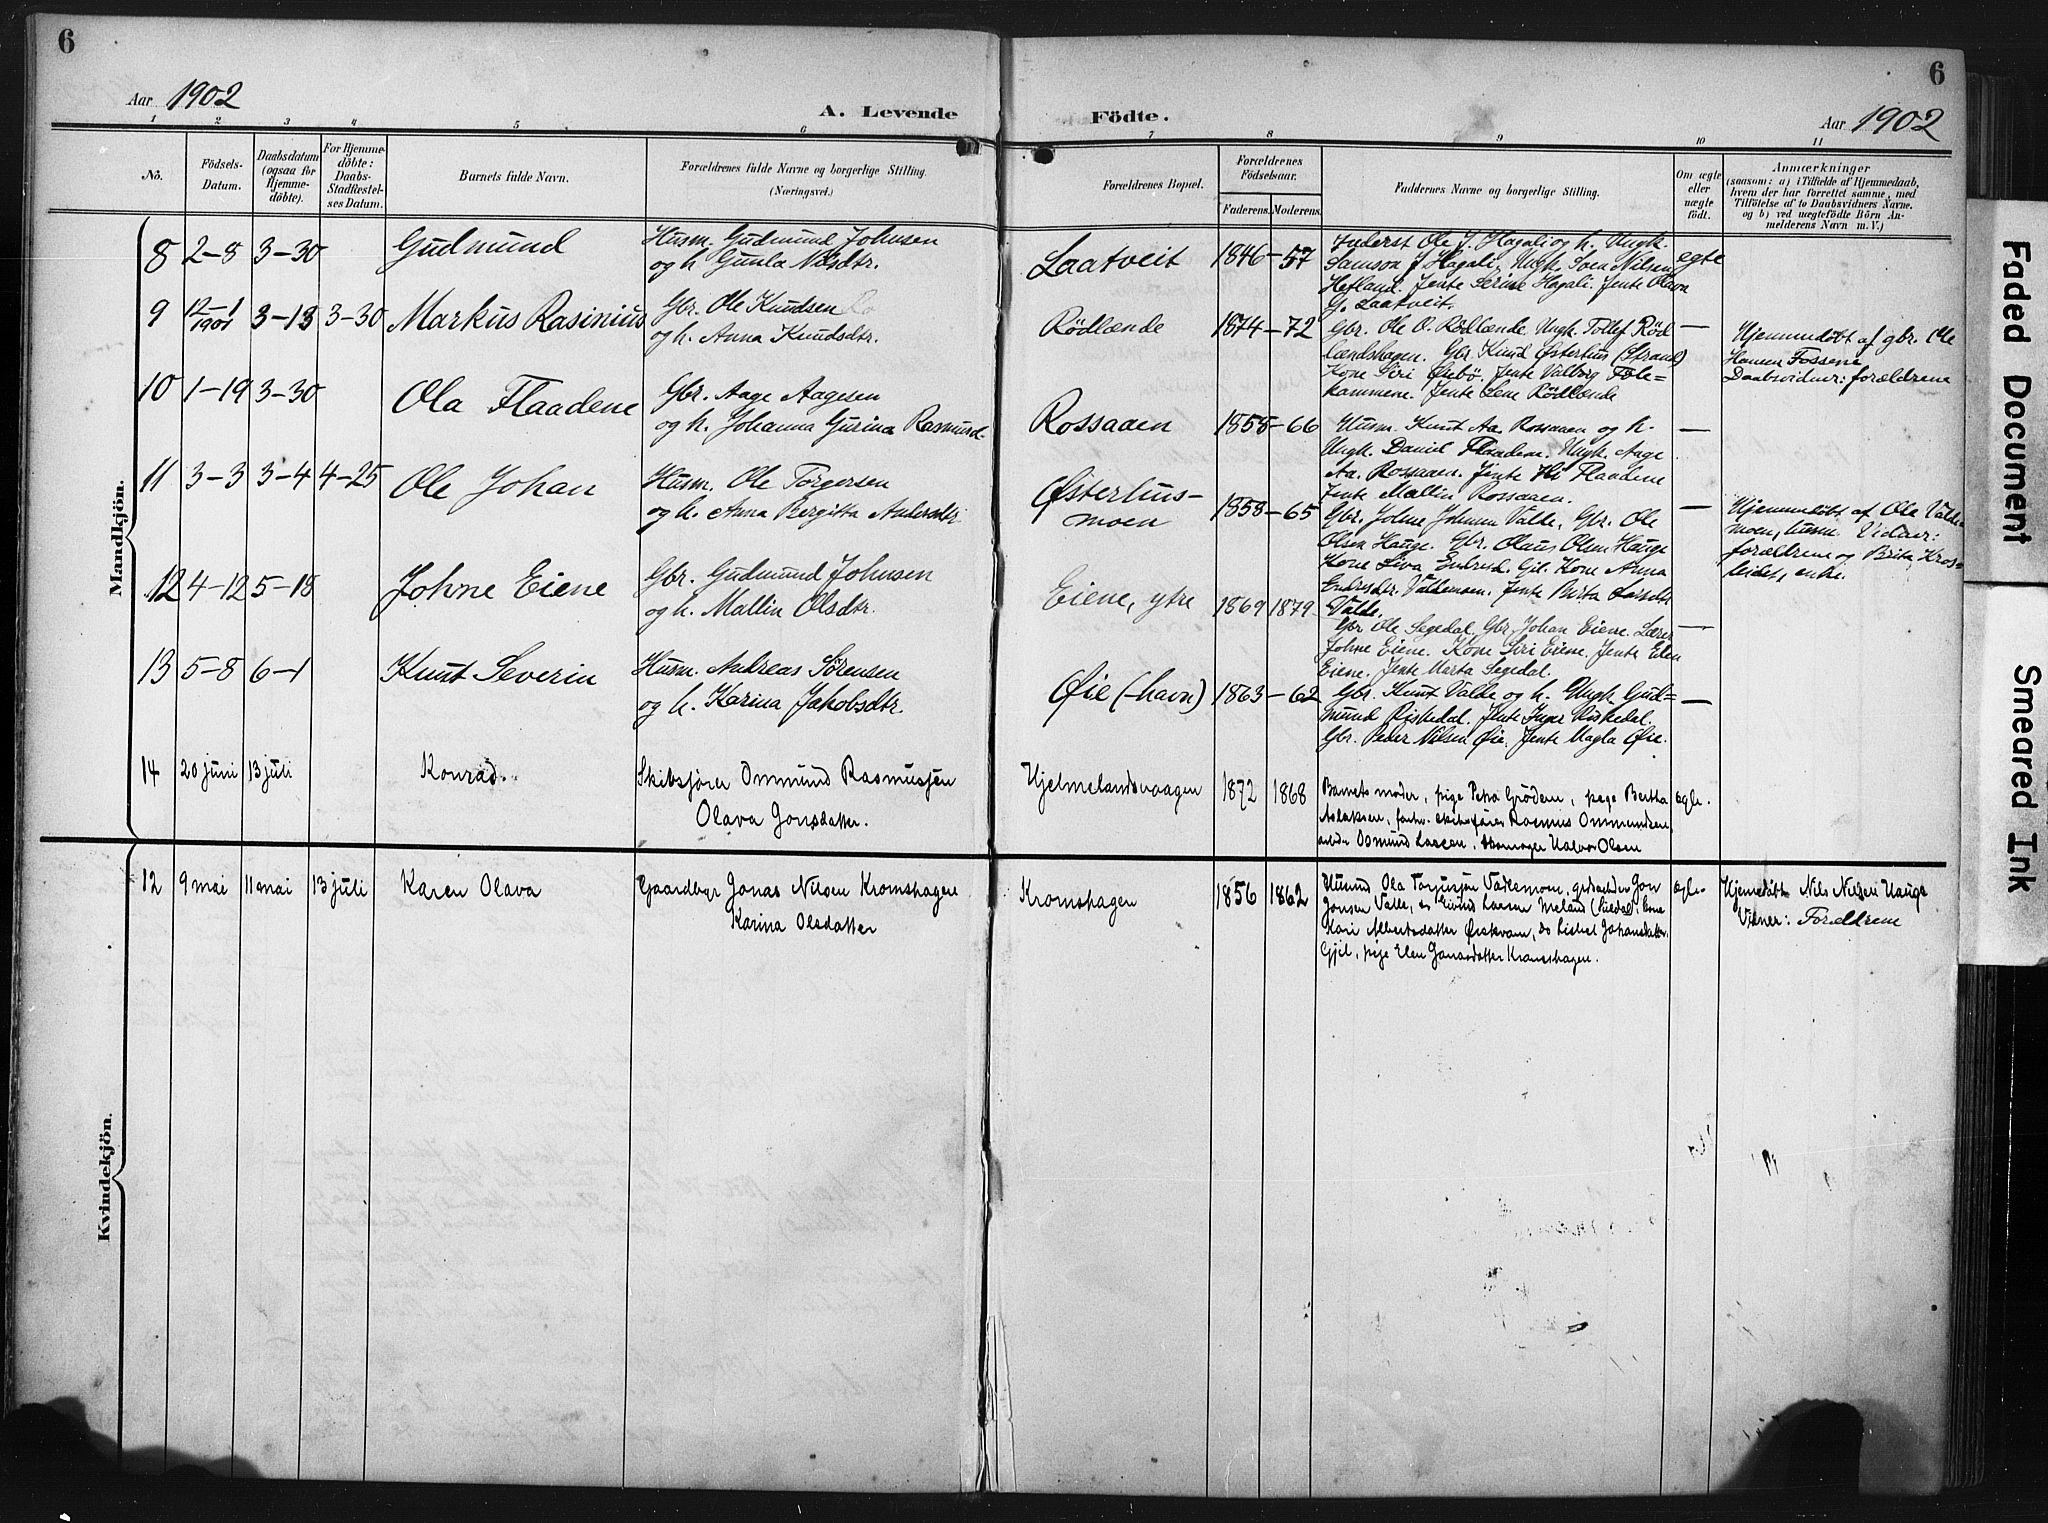 6
6
Aar 1902
A. Levende
Födte.
Aar 1902
1 2 3 4 5 6 7 8 9 10 11
No.
Födsels-
Datum.
Daabsdatum
(ogsaa for
Hjemme-
döbte).
For Hjemme-
döbte:
Daabs-
Stadfæstel-
ses Datum.
Barnets fulde Navn.
Forældrenes fulde Navne og borgerlige Stilling.
(Næringsvei.)
Forældrenes Bopæl.
Forældrenes
Födselsaar.
Faderens. Moderens.
Faddernes Navne og borgerlige Stilling.
Om ægte
eller
uægte
födt.
Anmærkninger
(saasom: a) i Tilfælde af Hjemmedaab,
hvem der har forrettet samme, med
Tilföielse af to Daabsvidners Navne.
og b) ved uægtefödte Börn An-
melderens Navn m. V.)
Mandkjön.
8 2-8 3-30 Gudmund
Husm. Gudmund Johnsen
og h. Gunla Nilsdtr.
Laatveit 1846-57
Inderst Ole J. Hagali og h. Ungk.
Samson J. Hagali, Ungk. Sven Nilsen
Hetland. Jente Serine Hagali. Jente Olavn
G. Laatveit.
egte
9 12-1 1901 3-13 3-30 Markus Rasinius
Gbr. Ole Knudsen
og h. Anna Knudsdtr.
Rödlænde 1874-72
Gbr. Ole O. Rødlænde. Ungk. Tollef Rød
lændshagen. Gbr. Knud Østerhus (Strand)
Kone Siri Øsebø. Jente Valborg Fole-
kammene. Jente Lene Rødlænde
—
Hjemmedøbt af gbr. Ole
Hansen Fossene
Daabsvidner: forældrene
10 1-19 3-30 Ola Flaadene
Gbr. Aage Aagesen
og h. Johanna Gurina Rasmusd-
Rossaaen 1858-66
Husm. Knut Aa. Rossaaen og h.
Ungk. Daniel Flaadene. Ungk. Aage
Aa. Rossaaen. Jente Flaadene
Jente Mallin Rossaaen.
—
11 3-3 3-4 4-25 Ole Johan
Husm. Ole Torgersen
og h. Anna Bergitta Andersdtr
Østerhus-
moen 1858-65
Gbr. Johne Johnsen Valde, Gbr. Ole
Olsen Hauge. Gbr. Olaus Olsen Hauge
Kone Siva Endresd. Gil. Kone Anna
Endresdtr. Valdemoen. Jente Berta Larsdtr
Valde.
—
Hjemmedøbt af Ole Valde
moen, husm. Vidner:
forældrene og Brita Kros-
leidet, enke.
12 4-12 5-18 Johne Eiene
Gbr. Gudmund Johnsen
og h. Mallin Olsdtr.
Eiene, ytre 1869 1879
Gbr Ole Segedal, Gbr. Johan Eiene. Lærer
Johne Eiene. Kone Siri Eiene. Jente Elen
Eiene. Jente Marta Segedal.
—
13 5-8 6-1 Knut Severin
Husm. Andreas Sørensen
og h. Karina Jakobsdtr.
Øie (-havn) 1863-62
Gbr. Knut Valde og h. Ungk. Gud=
mund Riskedal. Jente Inger Riskedal.
Gbr. Peder Nilsen Øie. Jente Magla Øie.
—
14 20 juni 13 juli Konrad.
Skibsfører Ommund Rasmussen
Olava Jonsdatter.
Hjelmelandsvaagen 1872 1868
Barnets moder, pige Petra Grødem, pige Bertha
Aslaksen, forhv. skibsfører Rasmus Ommundsen,
arbdr Osmund Larsen, skomager Halvor Olsen
egte.
Kvindekjön.
12 9 mai 11 mai 13 juli Karen Olava
Gaardbgr Jonas Nilsen Kromshagen
Karina Olsdatter
Kromshagen 1856 1862
Husmd Ola Torgersen Valdemoen, gardarbeider Jon
Jonsen Valle, do Eivind Larsen Meland (Suldal), kone
Kari Albertsdatter Øiskvam, do Lisbet Johansdatter
Gjil, pige Elen Jonasdatter Kromshagen.
egte.
Hjemedøbt Nils Nilsen Hauge
Vidner: Forældrene
Faded Document
Smeared Ink